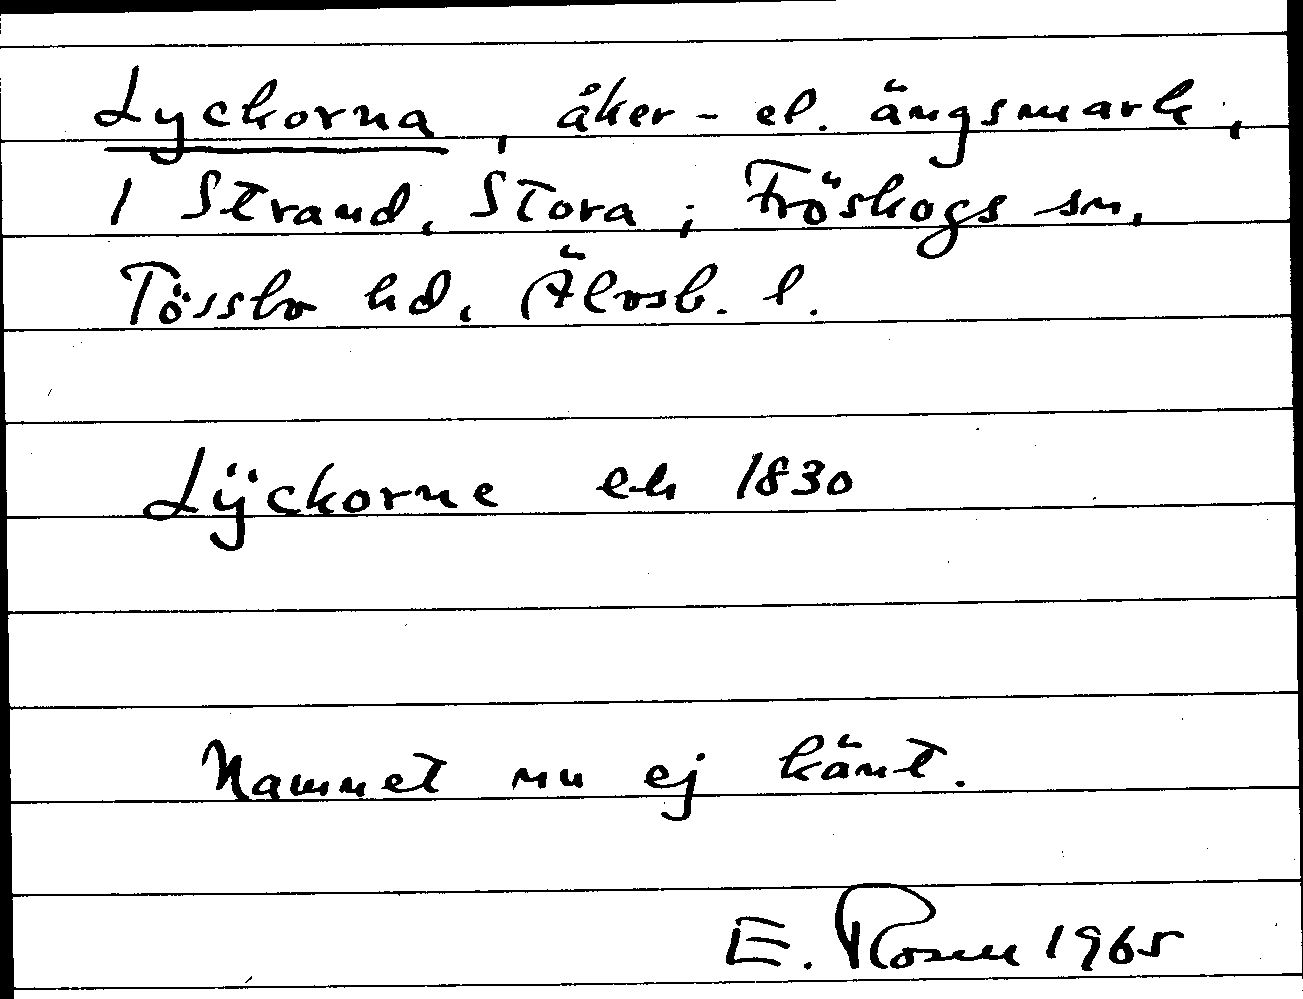 Lyckorna, åker- el. ängsmark,
1 Strand, Stora; Fröskogs sn,
Tössbo hd, Älvsb. l.
Lÿckorne eh 1830
Namnet nu ej känt.
E. Rosen 1965